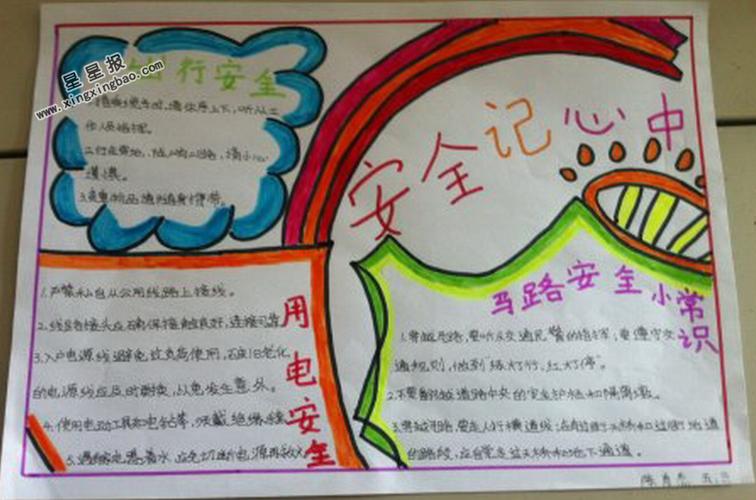 星星报
www.xingxingbao.com
行安全
作人员指挥。
3.贵重物品请随身携带。
安全记心中
1.严禁私自从公用线路上接线。
2.线路接头应确保接触良好,连接可靠
3.入户电源线避免过负荷使用,破旧老化
的电源线应及时更换,以免发生意外。
4.使用电动工具如电钻等,须戴绝缘
用电安全
马路安全小常识
1.穿越马路,要听从交通民警的指挥;要遵守交
通规则,做到“绿灯行,红灯停”。
2.不要翻越道路中央的安全护栏和隔离墩。
3.穿越马路,要走人行横道线;在有过街天桥和过街地道
的路段,应自觉走过街天桥和地下通道。